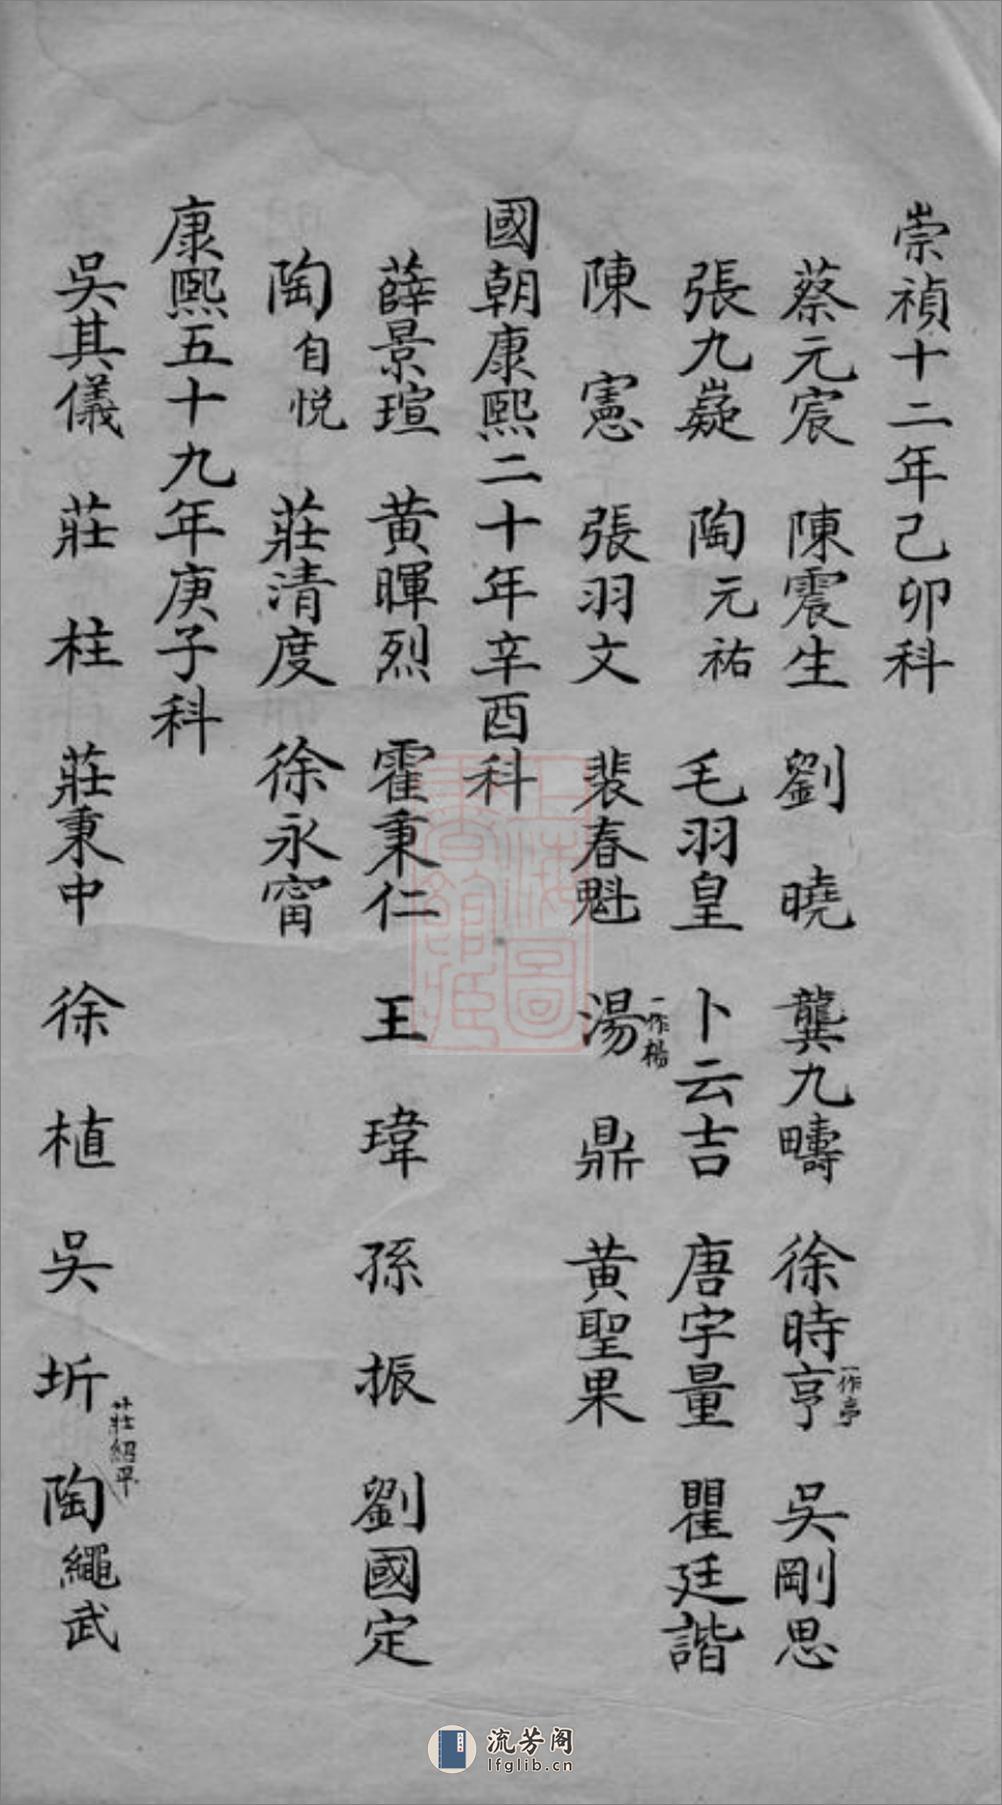 崇禎十二年己卯科
蔡元宸 陳震生 劉曉 龔九疇 徐時亨一作亭 吳剛思
張九嶷 陶元祐 毛羽皇 卜云吉 唐宇量 瞿廷諧
陳憲 張羽文 裴春魁 湯一作楊鼎 黄聖果
國朝康熙二十年辛酉科
薛景瑄 黄暉烈 霍秉仁 王瑋 孫振 劉國定
陶自悦 莊清度 徐永甯
康熙五十九年庚子科
吳其儀 莊柱 莊秉中 徐植 吳圻 莊紹平 陶繩武
上海圖書館藏
流芳阁
lfglib.cn